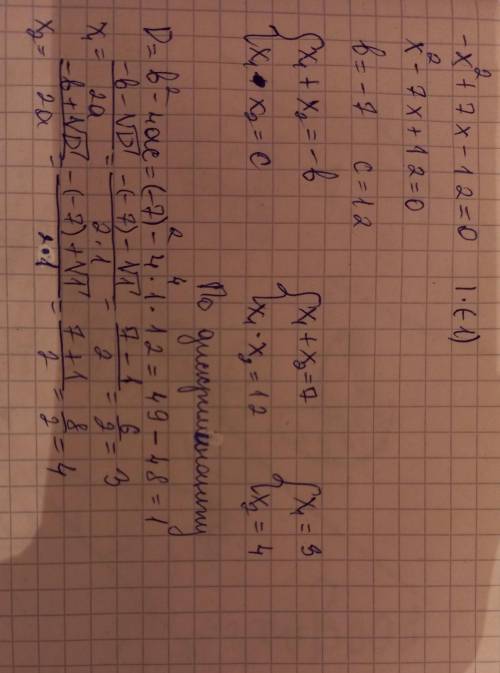 -x² + 7x - 12 = 0 | · (-1)
x² - 7x + 12 = 0
b = -7 c = 12
{ x₁ + x₂ = -b { x₁ + x₂ = 7 { x₁ = 3
{ x₁ · x₂ = c { x₁ · x₂ = 12 { x₂ = 4
По дискриминанту
D = b² - 4ac = (-7)² - 4 · 1 · 12 = 49 - 48 = 1
x₁ = (-b - √D)/2a = (-(-7) - √1)/(2 · 1) = (7 - 1)/2 = 6/2 = 3
x₂ = (-b + √D)/2a = (-(-7) + √1)/(2 · 1) = (7 + 1)/2 = 8/2 = 4